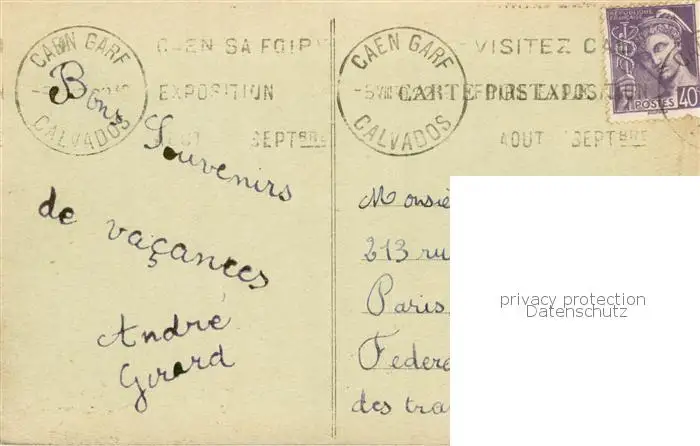 CAEN GARE
CALVADOS
CAEN SA FOIRE
EXPOSITION
AOUT SEPTBRE
CAEN GARE
CALVADOS
VISITEZ CA
CARTE POSTALE
AOUT SEPTBRE
POSTES 40
Bons
Souvenirs
de vacances
André
Girard
Monsie
213 ru
Paris
Federe
des tra
privacy protection
Datenschutz